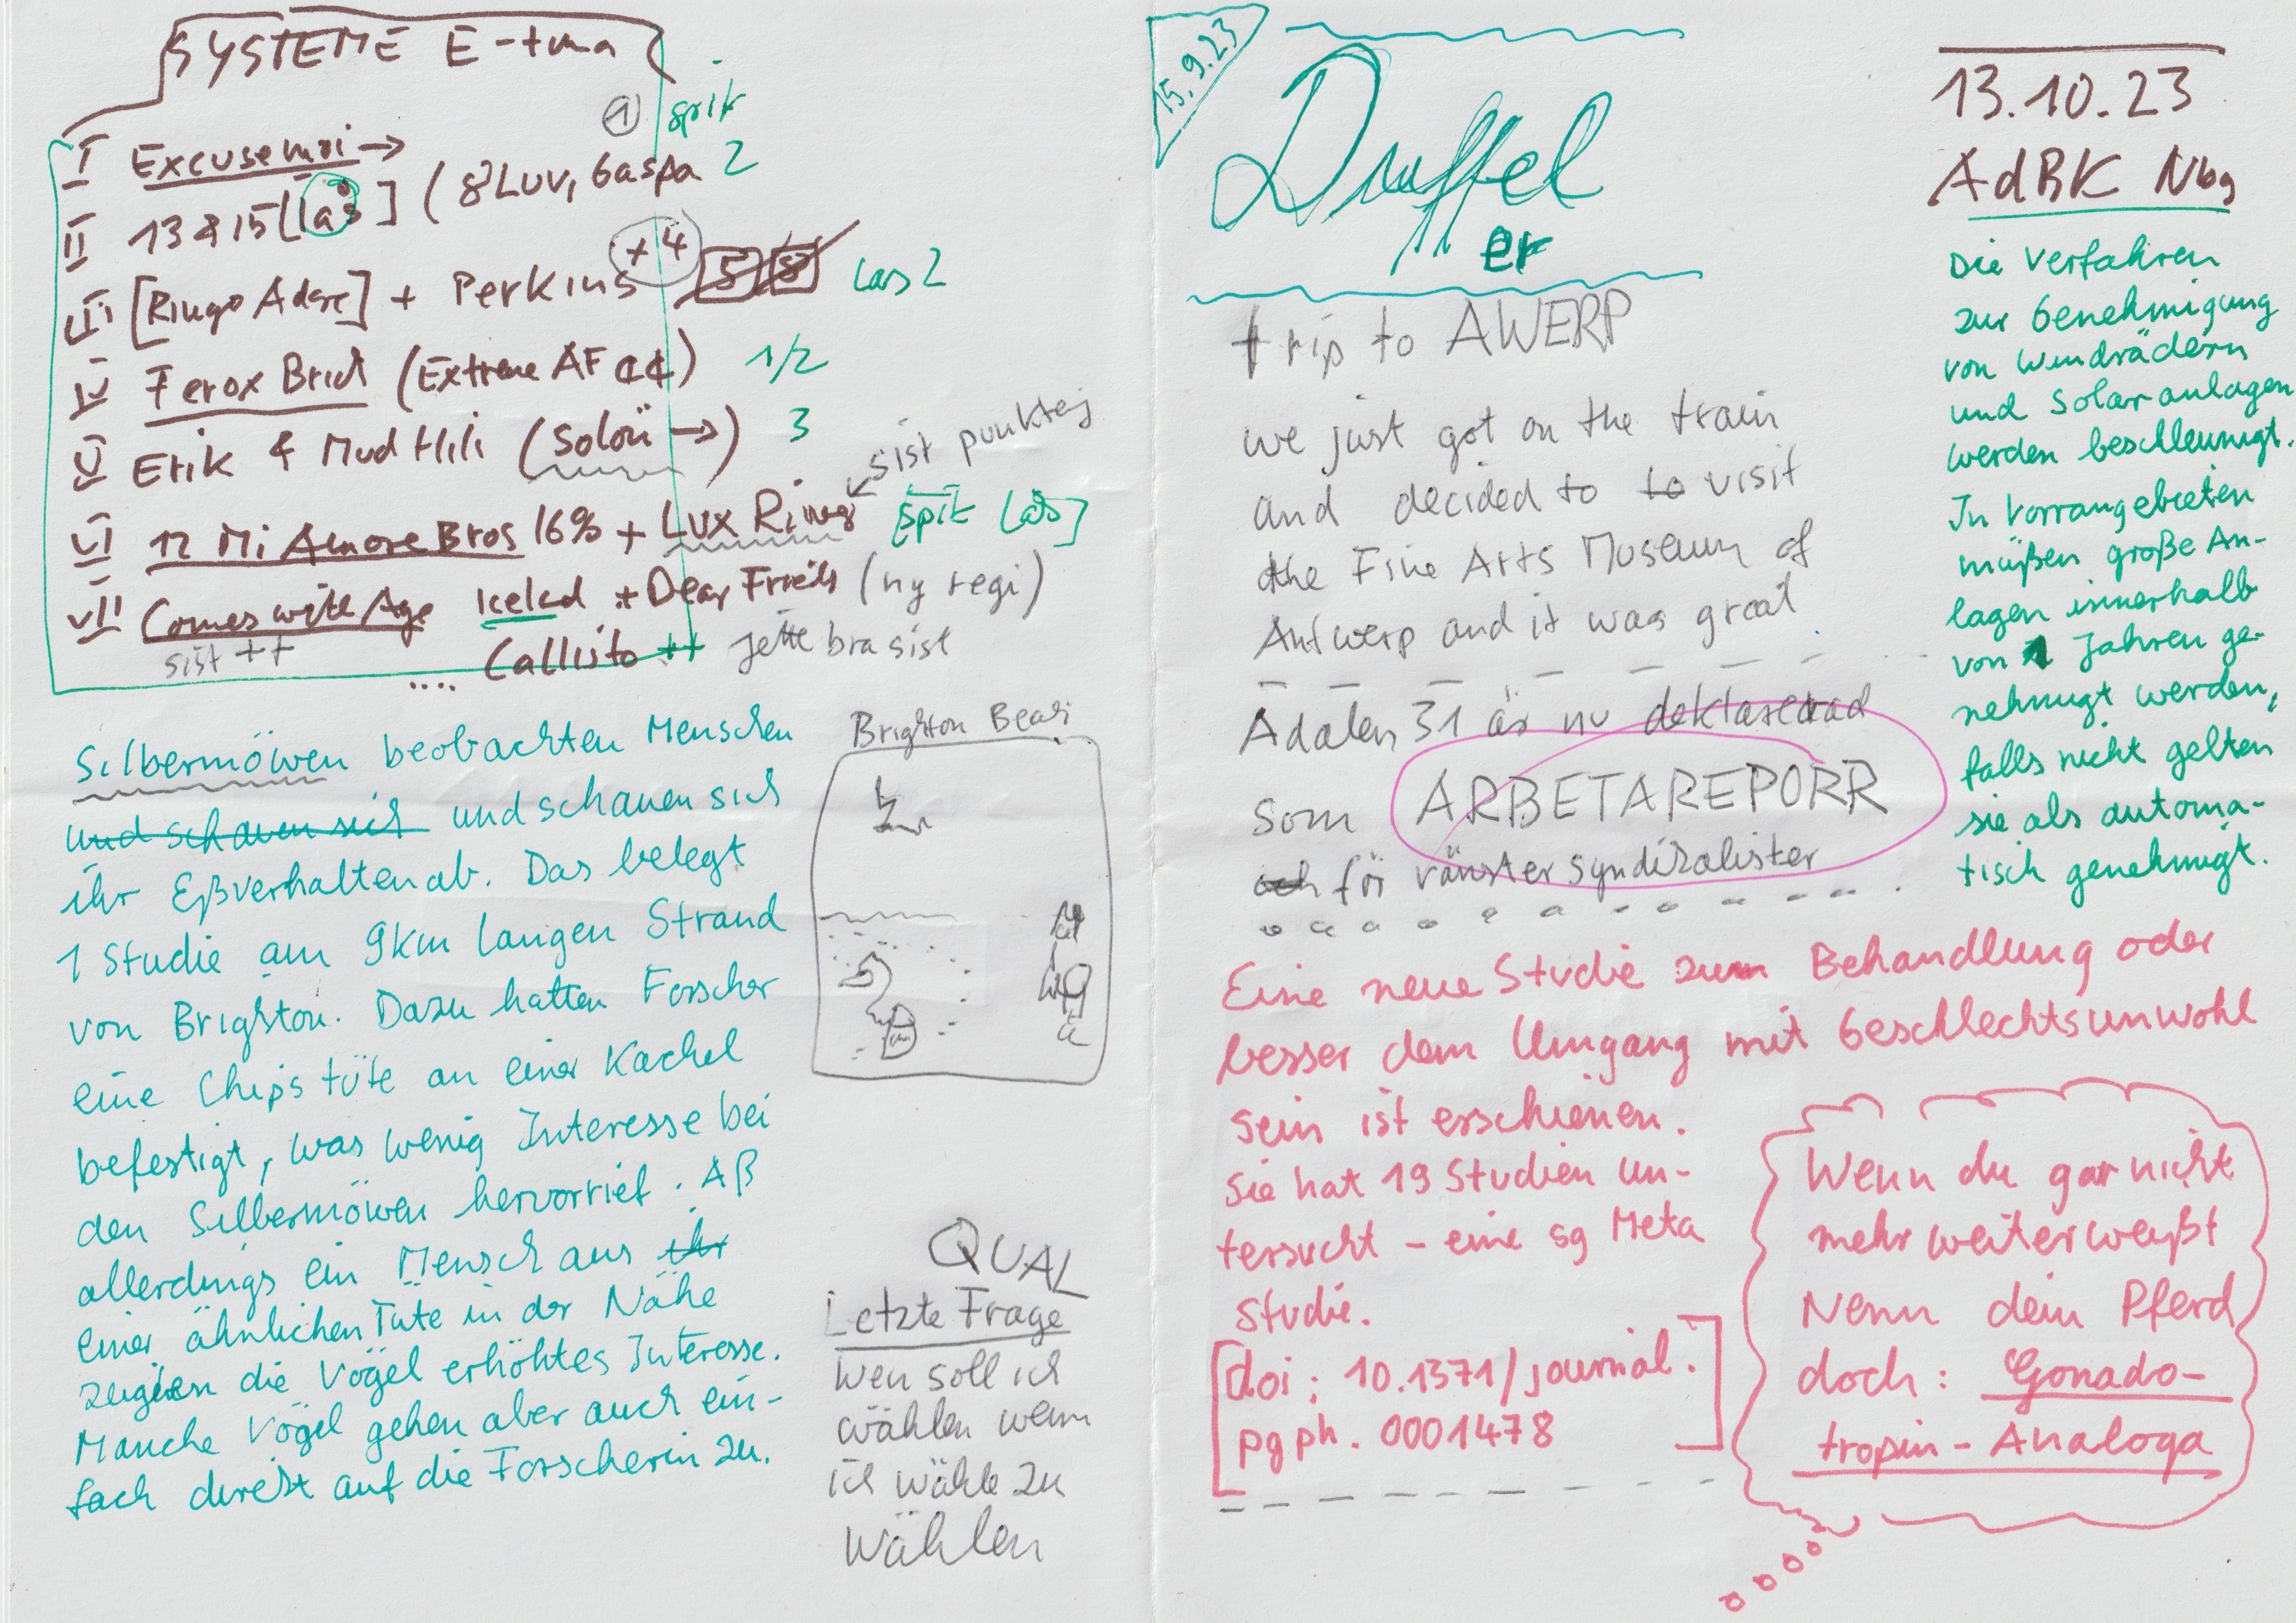 SYSTEME E-tma
①
sprit
I Excusemoi →
II 13 & 15 [lås] (8 LUV, Gaspa 2
III [Ringo Adare] + Perkins +4 Las 2
IV Ferox Brid (Extreme AF ¢¢) 1/2
V Erik & Mud Hili (Soloü →) 3
sist punktej
VI 12 Mi Amore Bros 16% + Lux Ring [spit lås]
VII Comes with Age Icelad + Dear Frieds (ny regi)
sist ++ .... Callisto ++ Jette bra sist
Silbermöwen beobachten Menschen
und schauen sich und schauen sich
ihr Eßverhalten ab. Das belegt
1 Studie am 9km langen Strand
von Brighton. Dazu hatten Forscher
eine Chipstüte an einer Kachel
befestigt, was wenig Interesse bei
den Silbermöwen hervorrief. Aß
allerdings ein Mensch aus ihr
einer ähnlichen Tüte in der Nähe
zeigten die Vögel erhöhtes Interesse.
Manche Vögel gehen aber auch ein-
fach direkt auf die Forscherin zu.
Brighton Beach
QUAL
Letzte Frage
Wen soll ich
wählen wenn
ich wähle zu
wählen
15.9.23
Duffel
er
trip to AWERP
we just got on the train
and decided to to visit
the Fine Arts Museum of
Antwerp and it was great
Adalen 31 är nu deklarerad
som ARBETAREPORR
och för vänstersyndikalister
Eine neue Studie zum Behandlung oder
besser dem Umgang mit Geschlechtsunwohl
sein ist erschienen.
Sie hat 19 Studien un-
tersucht - eine sg Meta
Studie.
[doi: 10.1371/journal.
pgph.0001478]
13.10.23
AdBK Nbg
Die Verfahren
zur Genehmigung
von Windrädern
und Solaranlagen
werden beschleunigt.
In Vorrangebieten
müßen große An-
lagen innerhalb
von 1 Jahren ge-
nehmigt werden,
falls nicht gelten
sie als automa-
tisch genehmigt.
Wenn du gar nicht
mehr weiter weißt
Nenn dein Pferd
doch: Gonado-
tropin-Analoga